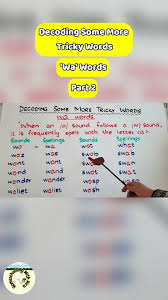 Decoding Some More
Tricky Words
'Wa' Words
Part 2
DECODING SOME MORE TRICKY WORDS
wa words
"When an /o/ sound follows a /w/ sound,
it is frequently spelt with the letter
Sounds Spellings Sounds Spellings
wo wa
woz was swob swab
wont want swon swan
wond wand
wonder wander
wollet wallet wosh wash